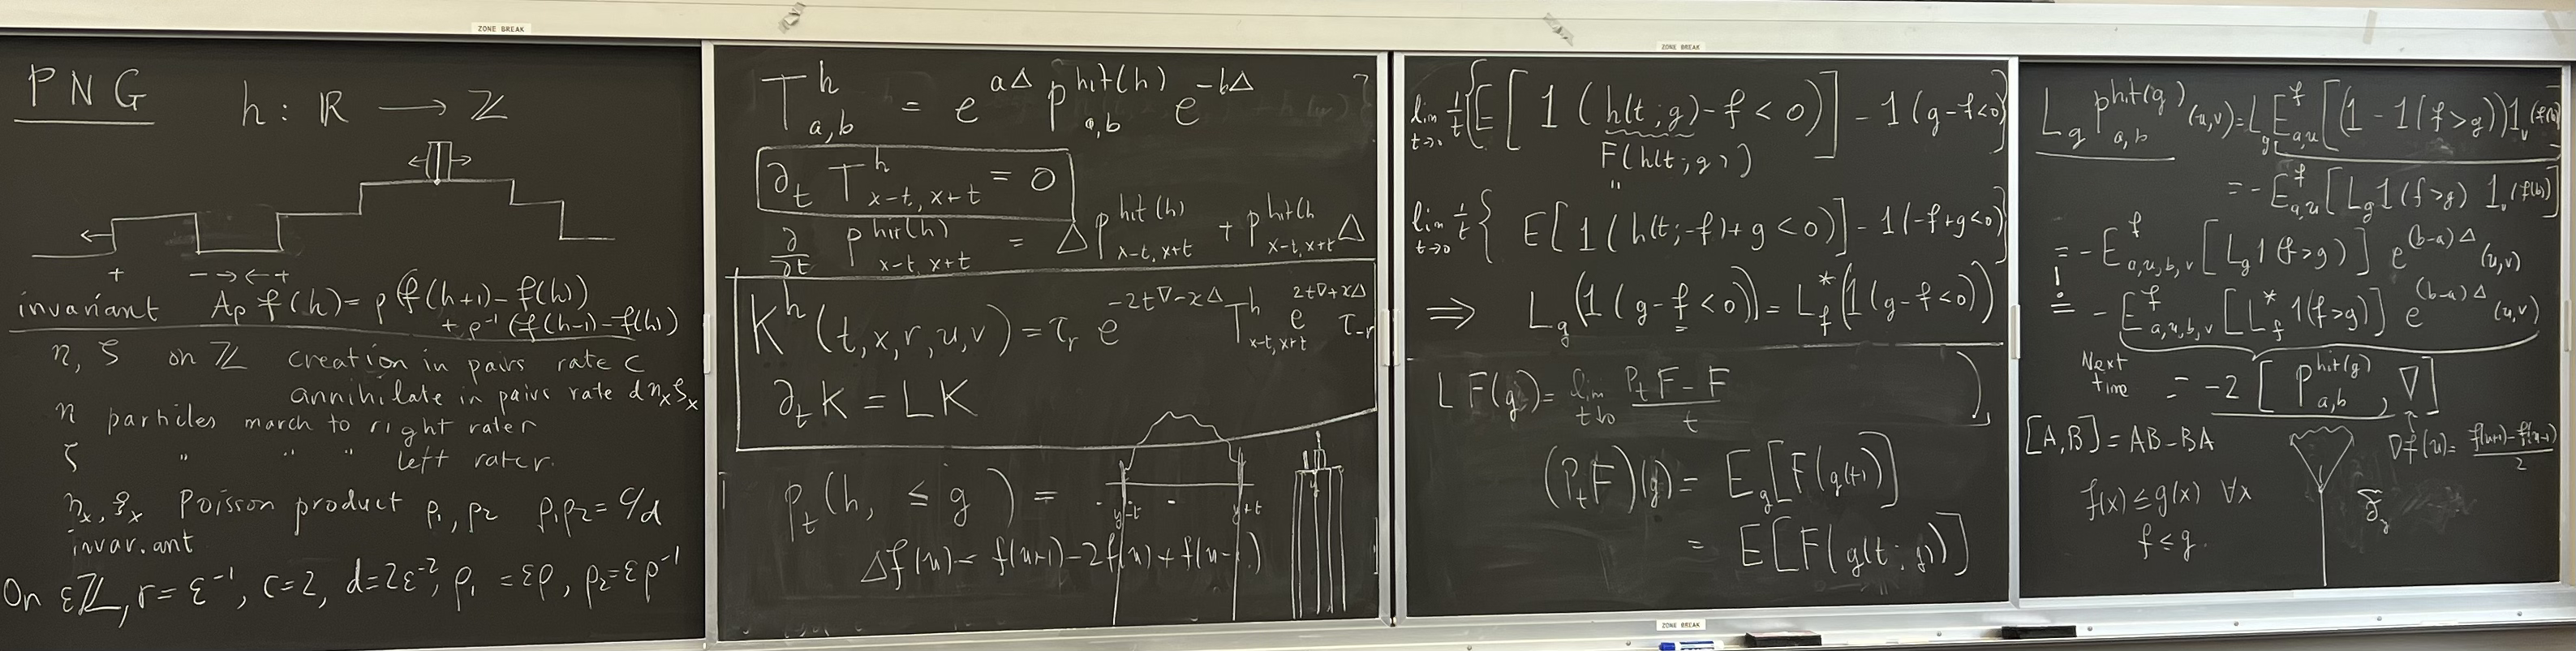 ZONE BREAK
PNG
h : ℝ → ℤ
← →
←
+ − → ← +
invariant A_ρ f(h) = ρ(f(h+1) − f(h))
+ ρ^{-1}(f(h−1) − f(h))
η, ζ on ℤ creation in pairs rate c
annihilate in pairs rate d η_x ζ_x
η particles march to right rate r
ζ " " " left rate r.
η_x, ζ_x Poisson product ρ₁, ρ₂ ρ₁ρ₂ = c/d
invariant
On εℤ, r = ε^{-1}, c = 2, d = 2ε^{-2}, ρ₁ = ερ, ρ₂ = ερ^{-1}
T^h_{a,b} = e^{aΔ} P^{hit(h)}_{a,b} e^{-bΔ}
∂_t T^h_{x-t, x+t} = 0
∂/∂t P^{hit(h)}_{x-t, x+t} = Δ P^{hit(h)}_{x-t, x+t} + P^{hit(h}_{x-t, x+t} Δ
K^h(t, x, r, u, v) = τ_r e^{-2t∇-xΔ} T^h_{x-t, x+t} e^{2t∇+xΔ} τ_{-r}
∂_t K = LK
P_t(h, ≤ g) =
y-t y+t
y
Δf(u) = f(u+1) − 2f(u) + f(u−1)
ZONE BREAK
lim_{t→0} 1/t { E[1(h(t; g) − f < 0)] − 1(g−f<0)}
F(h(t; g))
"
lim_{t→0} 1/t { E[1(h(t; −f) + g < 0)] − 1(−f+g<0)}
⟹ L_g(1(g−f<0)) = L_f^*(1(g−f<0))
LF(g) = lim_{t↓0} (P_t F − F)/t
(P_t F)(g) = E_g[F(g(t))]
= E[F(g(t; g))]
ZONE BREAK
L_g P^{hit(g)}_{a,b}(u,v) = L_g E^f_{a,u}[(1 − 1(f>g)) 1_v(f(b))]
= − E^f_{a,u}[L_g 1(f>g) 1_v(f(b))]
= − E^f_{a,u,b,v}[L_g 1(f>g)] e^{(b-a)Δ}(u,v)
!
= − E^f_{a,u,b,v}[L_f^* 1(f>g)] e^{(b-a)Δ}(u,v)
Next time = −2 [P^{hit(g)}_{a,b}, ∇]
[A,B] = AB − BA
∇f(u) = (f(u+1) − f(u−1))/2
f(x) ≤ g(x) ∀x
f ≤ g